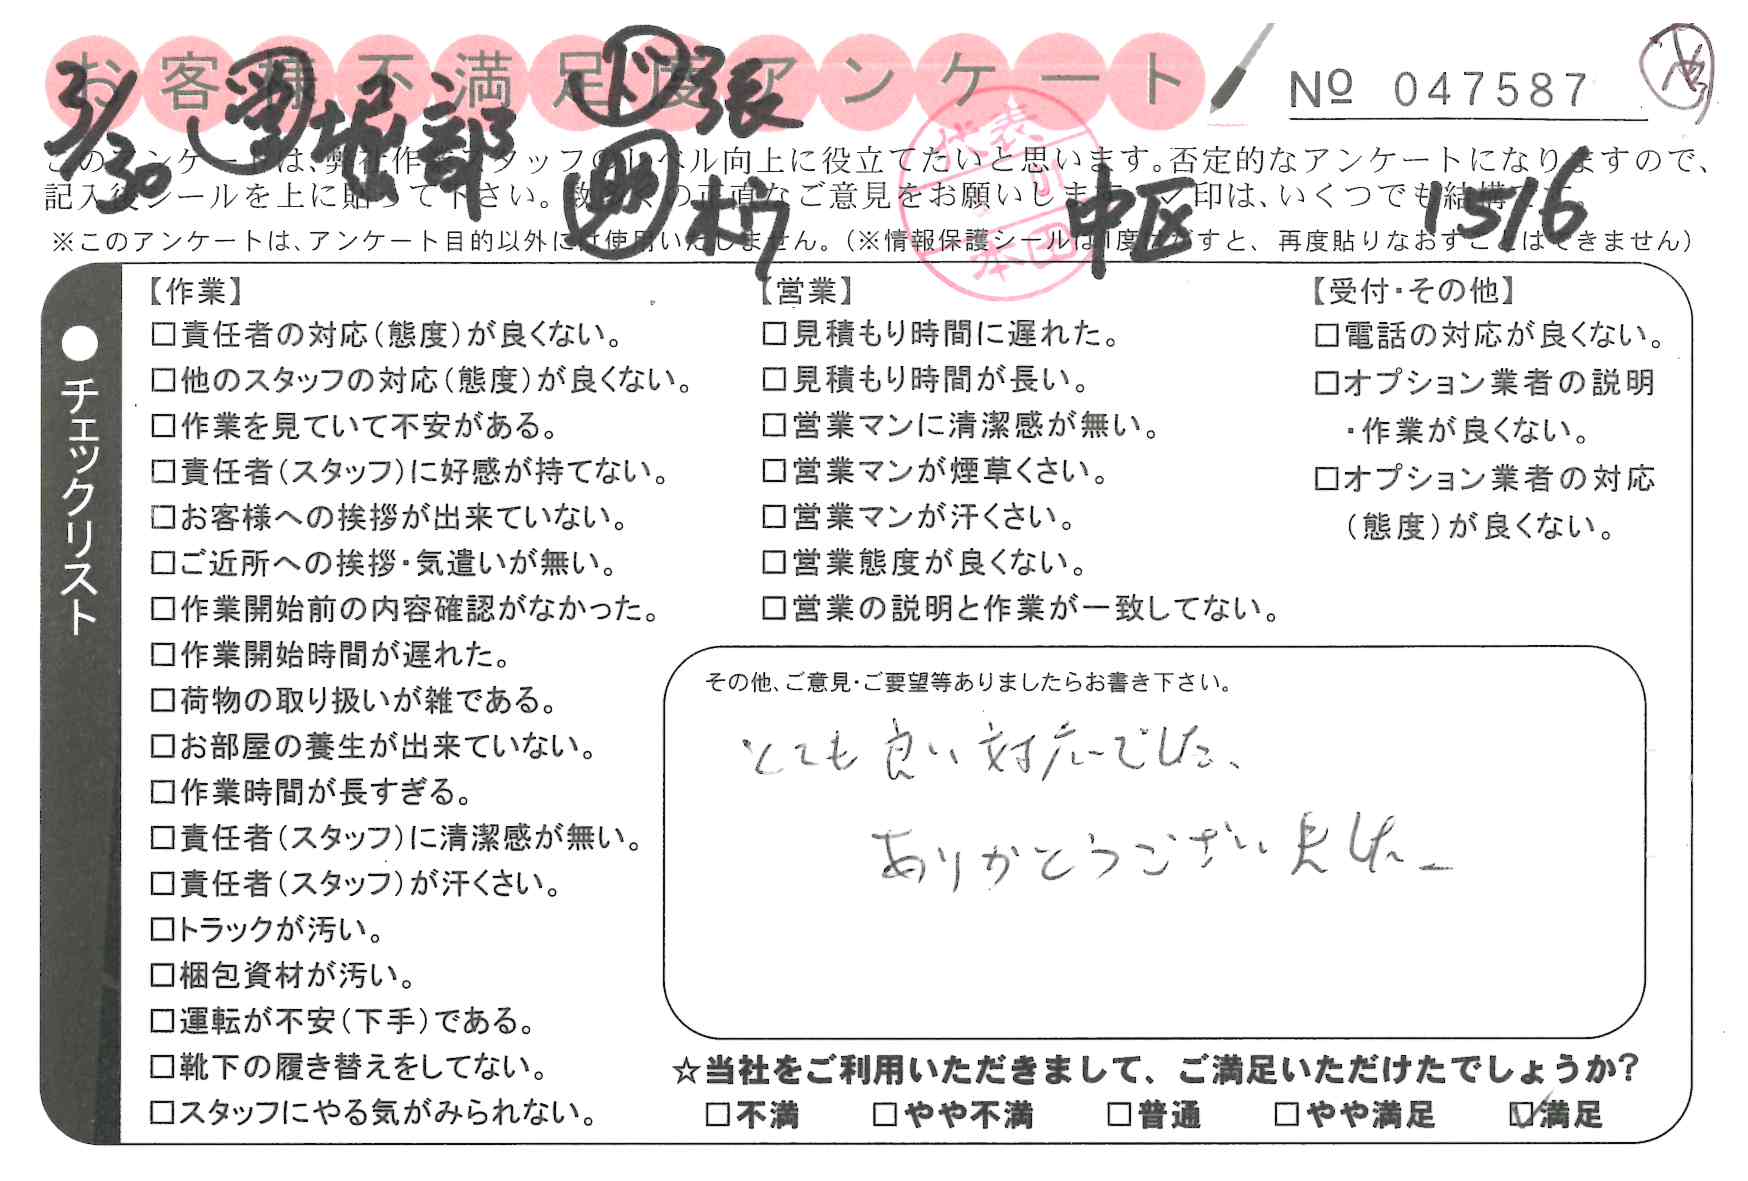 お客様不満足度アンケート
№ 047587
3/30 堀部 ド 張
桝 中区 1516
代表 本田
このアンケートは、弊社作業スタッフのレベル向上に役立てたいと思います。否定的なアンケートになりますので、
記入後シールを上に貼って下さい。数多くの正直なご意見をお願いします。✓印は、いくつでも結構です。
※このアンケートは、アンケート目的以外には使用いたしません。（※情報保護シールは1度はがすと、再度貼りなおすことはできません）
●チェックリスト
【作業】
□責任者の対応（態度）が良くない。
□他のスタッフの対応（態度）が良くない。
□作業を見ていて不安がある。
□責任者（スタッフ）に好感が持てない。
□お客様への挨拶が出来ていない。
□ご近所への挨拶・気遣いが無い。
□作業開始前の内容確認がなかった。
□作業開始時間が遅れた。
□荷物の取り扱いが雑である。
□お部屋の養生が出来ていない。
□作業時間が長すぎる。
□責任者（スタッフ）に清潔感が無い。
□責任者（スタッフ）が汗くさい。
□トラックが汚い。
□梱包資材が汚い。
□運転が不安（下手）である。
□靴下の履き替えをしてない。
□スタッフにやる気がみられない。
【営業】
□見積もり時間に遅れた。
□見積もり時間が長い。
□営業マンに清潔感が無い。
□営業マンが煙草くさい。
□営業マンが汗くさい。
□営業態度が良くない。
□営業の説明と作業が一致してない。
【受付・その他】
□電話の対応が良くない。
□オプション業者の説明
・作業が良くない。
□オプション業者の対応
（態度）が良くない。
その他、ご意見・ご要望等ありましたらお書き下さい。
とても良い対応でした、
ありがとうございました
☆当社をご利用いただきまして、ご満足いただけたでしょうか？
□不満 □やや不満 □普通 □やや満足 ☑満足